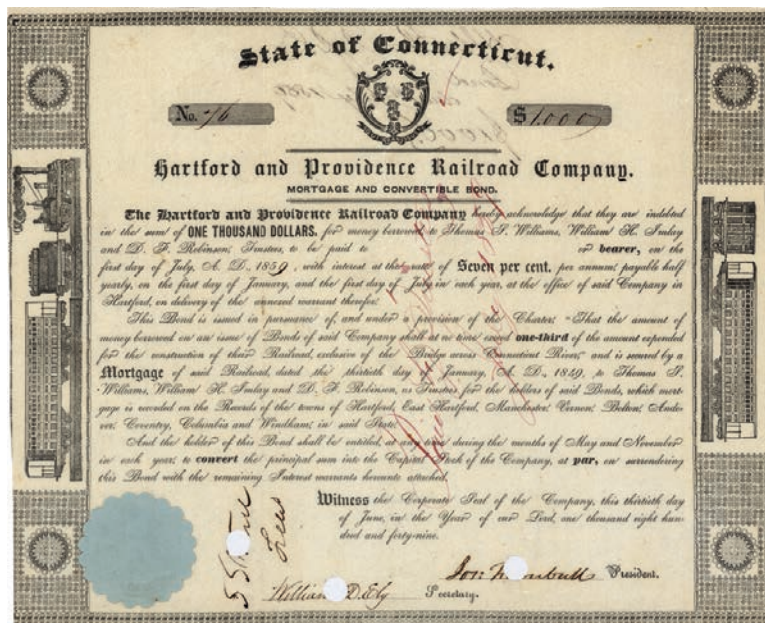 State of Connecticut.
No. 76
$ 1,000
Hartford and Providence Railroad Company.
MORTGAGE AND CONVERTIBLE BOND.
The Hartford and Providence Railroad Company hereby acknowledge that they are indebted
in the sum of ONE THOUSAND DOLLARS, for money borrowed to Thomas S. Williams, William H. Imlay
and D. F. Robinson, Trustees, to be paid to or bearer, on the
first day of July, A. D., 1859, with interest at the rate of Seven per cent. per annum, payable half
yearly, on the first day of January, and the first day of July in each year, at the office of said Company in
Hartford, on delivery of the annexed warrant therefor.
This Bond is issued in pursuance of, and under a provision of the Charter; "That the amount of
money borrowed on an issue of Bonds of said Company shall at no time exceed one-third of the amount expended
for the construction of their Railroad, exclusive of the Bridge across Connecticut River;" and is secured by a
Mortgage of said Railroad, dated the thirtieth day of January, A. D., 1849, to Thomas S.
Williams, William H. Imlay and D. F. Robinson, as Trustees for the holders of said Bonds, which mort-
gage is recorded on the Records of the towns of Hartford, East Hartford, Manchester, Vernon, Bolton, Ando-
ver, Coventry, Columbia and Windham, in said State.
And the holder of this Bond shall be entitled, at any time during the months of May and November
in each year, to convert the principal sum into the Capital Stock of the Company, at par, on surrendering
this Bond with the remaining Interest warrants hereunto attached.
Witness the Corporate Seal of the Company, this thirtieth day
of June, in the Year of our Lord, one thousand eight hun-
dred and forty-nine.
President.
William D. Ely Secretary.